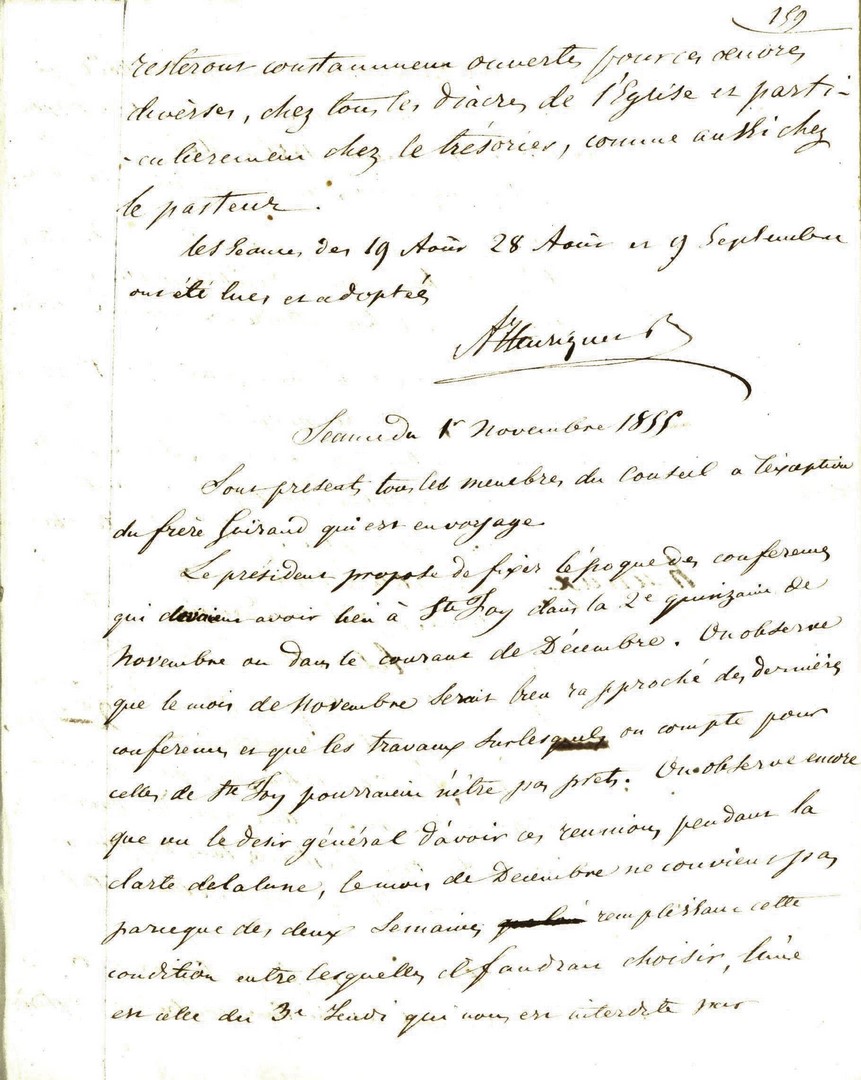 159
resteront constamment ouvertes pour ces œuvres
diverses, chez tous les diacres de l'Eglise et parti-
-culierement chez le trésorier, comme aussi chez
le pasteur.
les séances des 19 Août 28 Août et 9 Septembre
ont été lues et adoptées
Séance du 1r Novembre 1855
Sont presents tous les membres du Conseil a l'exception
du frère Guiraud qui est en voyage
Le président propose de fixer l'époque des conférences
qui devaient avoir lieu à Ste Foy dans la 2e quinzaine de
Novembre ou dans le courant de Décembre. On observe
que le mois de Novembre serait bien rapproché des dernières
conférences et que les travaux sur lesquels on compte pour
celles de Ste Foy pourraient n'être pas prêts. On observe encore
que vu le desir général d'avoir ces reunions pendant la
clarte de la lune, le mois de Décembre ne convient pas
parceque des deux semaines remplissant cette
condition entre lesquelles il faudrait choisir, l'une
est celle du 3e Jeudi qui nous est interdite par